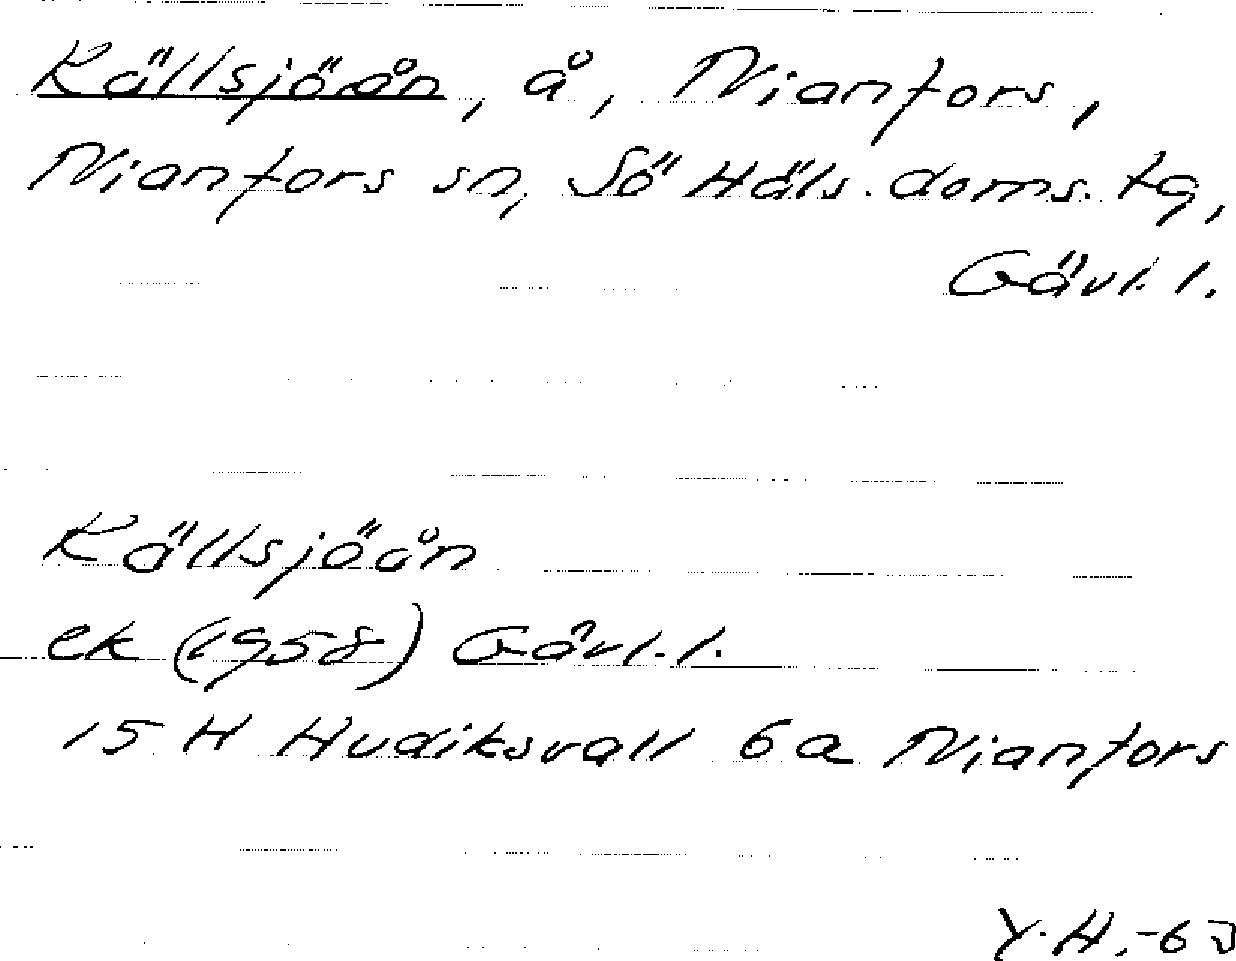 Källsjöån, å, Nianfors,
Nianfors sn, Sö Häls. doms. tg,
Gävl. l.
Källsjöån
ek (1958) Gävl. l.
15 H Hudiksvall 6a Nianfors
Y. H. -63